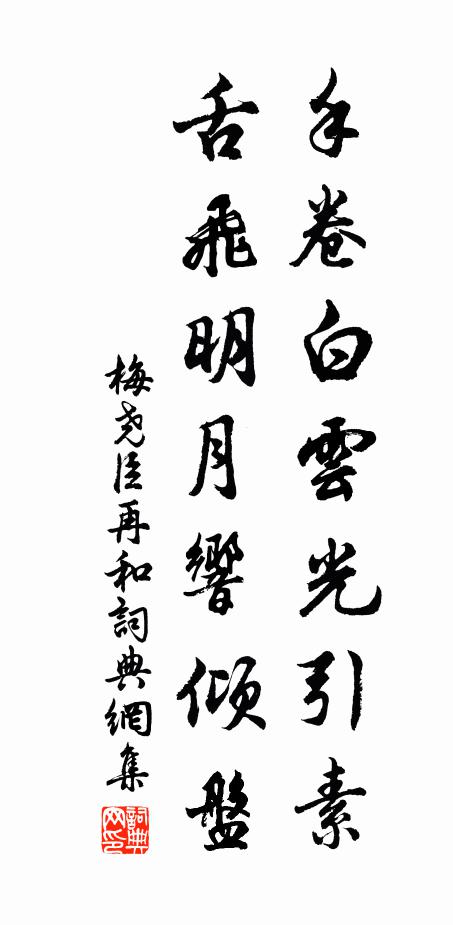 手卷白雲光引素
舌飛明月響傾盤
梅堯臣再和詞典網集
詞典
网印